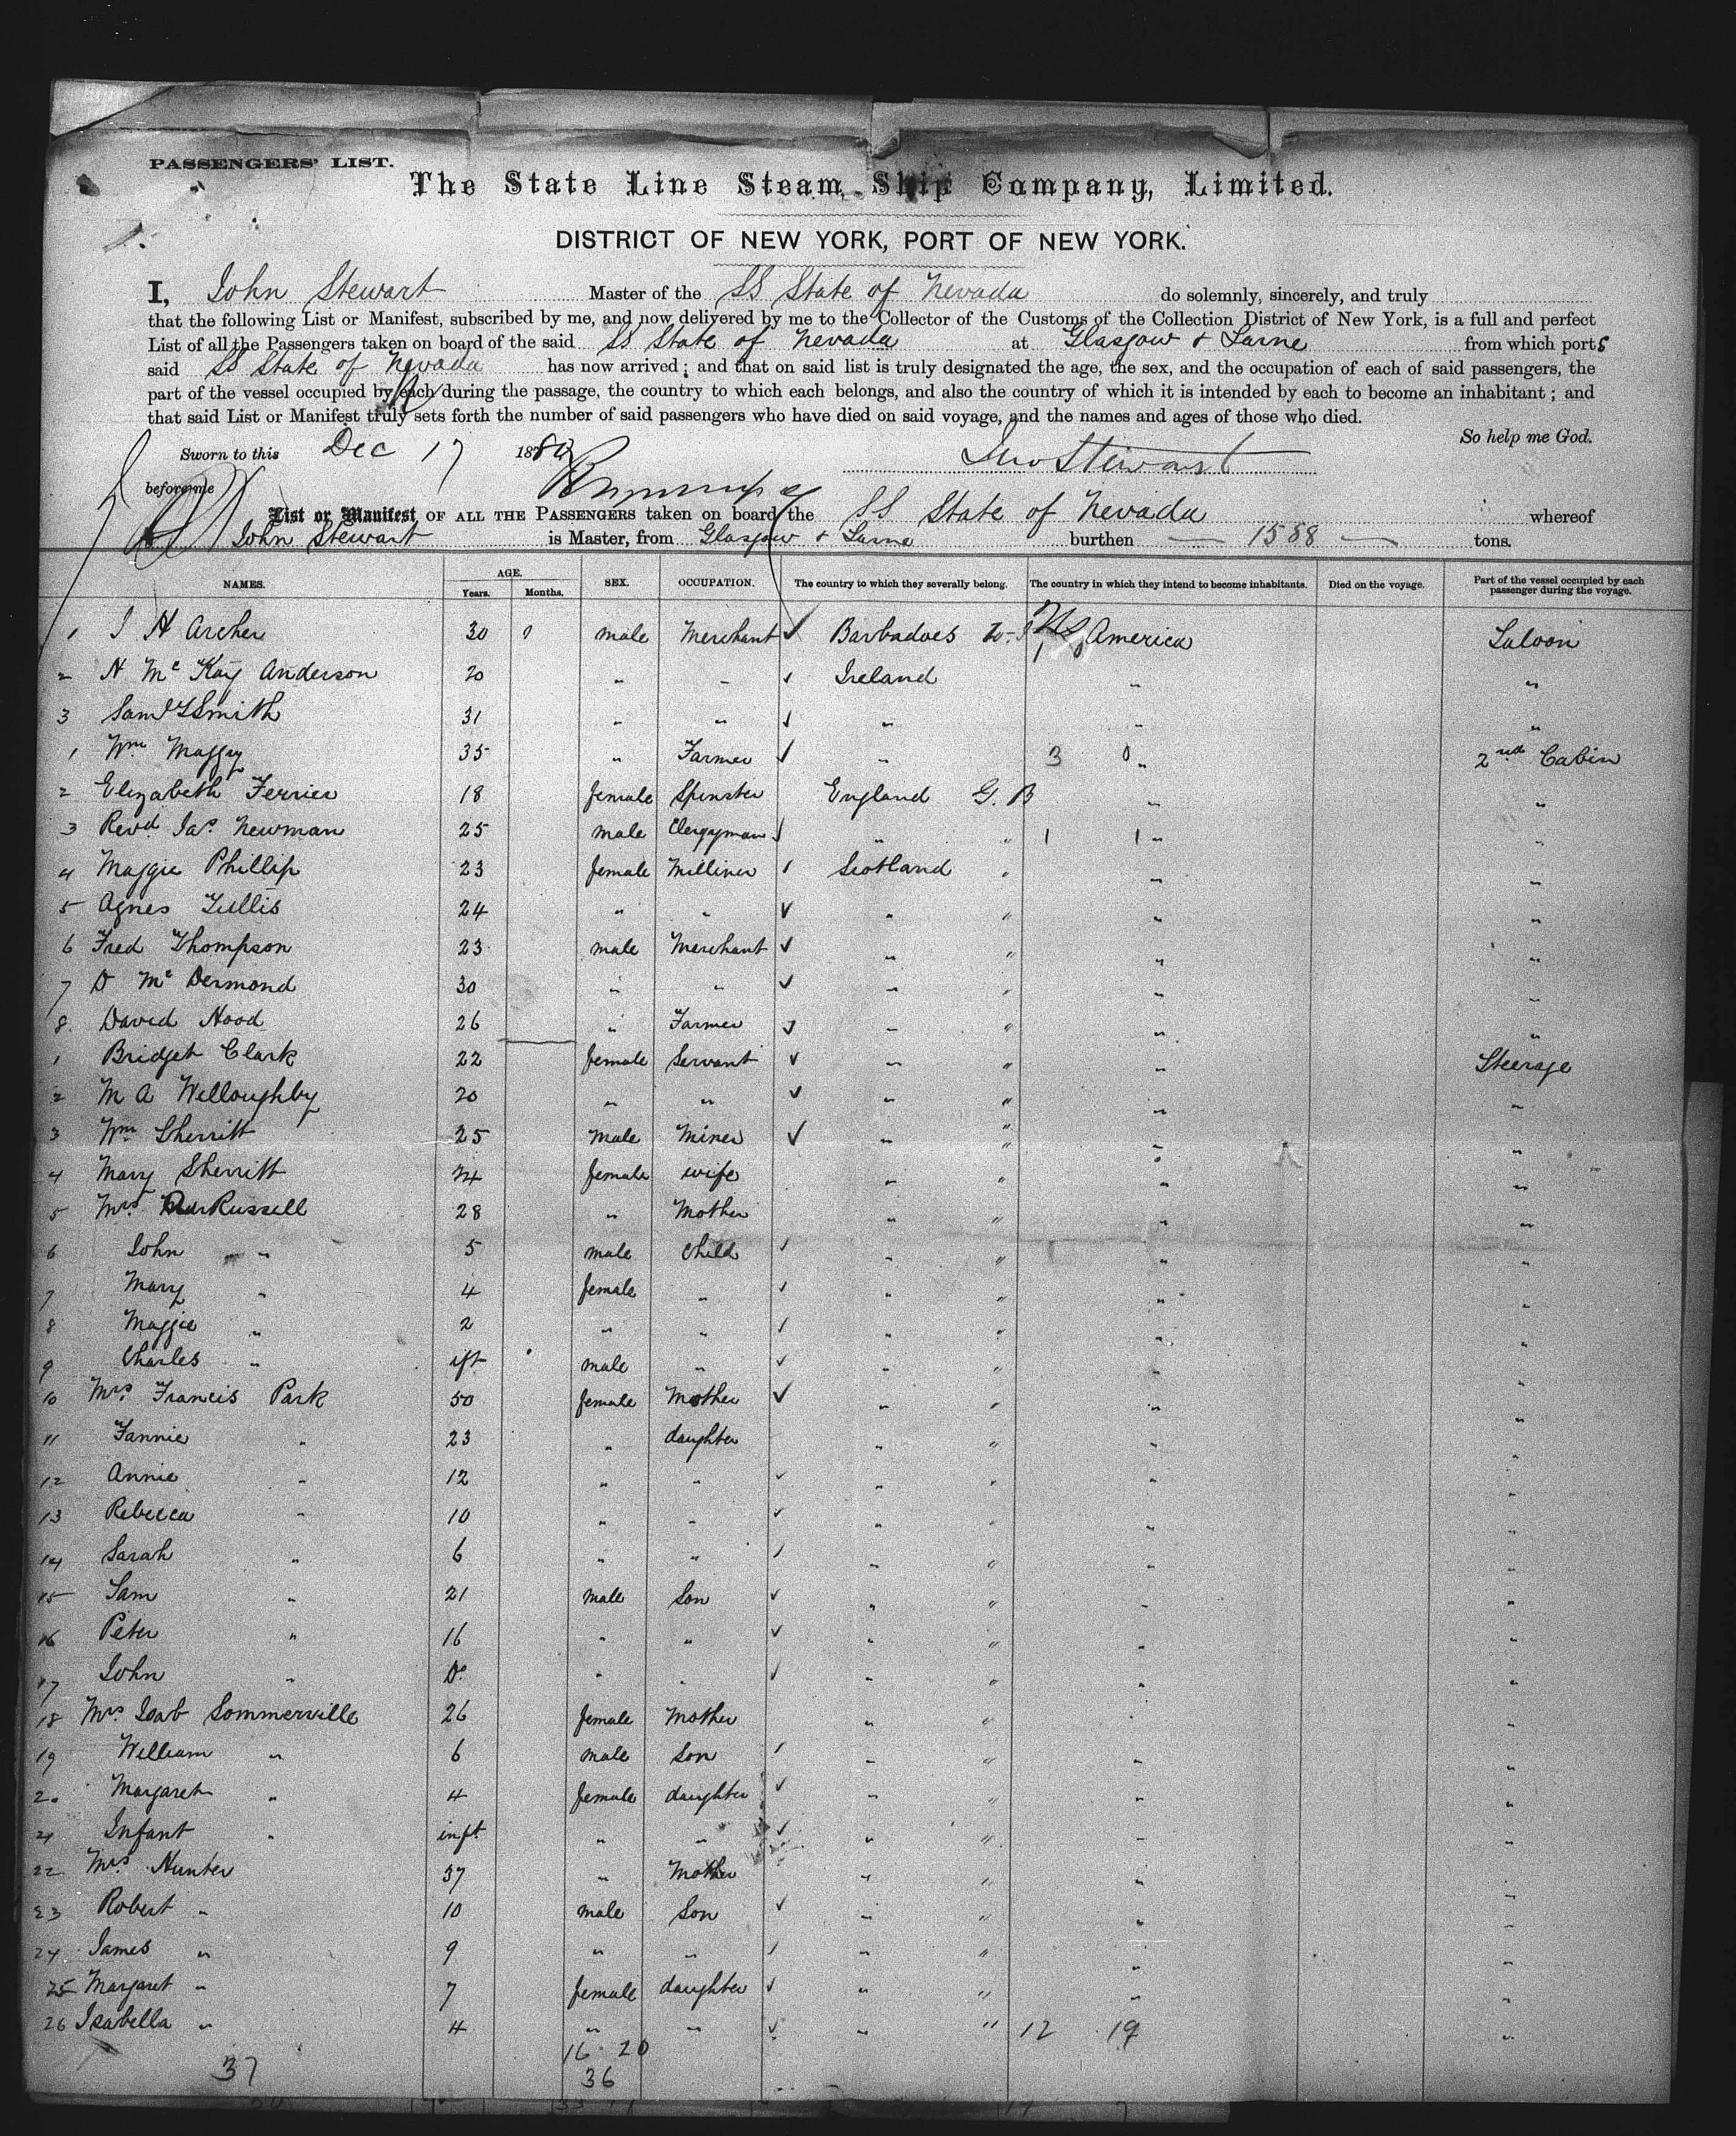 PASSENGERS' LIST.
The State Line Steam Ship Company, Limited.
DISTRICT OF NEW YORK, PORT OF NEW YORK.
I, John Stewart Master of the SS State of Nevada do solemnly, sincerely, and truly
that the following List or Manifest, subscribed by me, and now delivered by me to the Collector of the Customs of the Collection District of New York, is a full and perfect
List of all the Passengers taken on board of the said SS State of Nevada at Glasgow & Larne from which ports
said SS State of Nevada has now arrived; and that on said list is truly designated the age, the sex, and the occupation of each of said passengers, the
part of the vessel occupied by each during the passage, the country to which each belongs, and also the country of which it is intended by each to become an inhabitant; and
that said List or Manifest truly sets forth the number of said passengers who have died on said voyage, and the names and ages of those who died.
So help me God.
Sworn to this Dec 17 1880 Jno Stewart
before me
List or Manifest OF ALL THE PASSENGERS taken on board the SS State of Nevada whereof
John Stewart is Master, from Glasgow & Larne burthen — 1588 — tons.
NAMES. AGE. Years. Months. SEX. OCCUPATION. The country to which they severally belong. The country in which they intend to become inhabitants. Died on the voyage. Part of the vessel occupied by each passenger during the voyage.
1 J H Archer 30 male Merchant ✓ Barbadoes W-I America Saloon
2 H Mc Kay Anderson 20 " " ✓ Ireland " "
3 Saml S Smith 31 " " ✓ " " "
1 Wm Maggy 35 " Farmer ✓ " 3 0 " 2nd Cabin
2 Elizabeth Ferrier 18 female Spinster England G. B " "
3 Revd Jas Newman 25 male Clergyman ✓ " " 1 1 " "
4 Maggie Phillip 23 female Milliner ✓ Scotland " " "
5 Agnes Tullis 24 " " ✓ " " " "
6 Fred Thompson 23 male Merchant ✓ " " " "
7 D Mc Dermond 30 " " ✓ " " " "
8 David Hood 26 " Farmer ✓ " " " "
1 Bridget Clark 22 female Servant ✓ " " " Steerage
2 M A Willoughby 20 " " ✓ " " " "
3 Wm Sherritt 25 male Miner ✓ " " " "
4 Mary Sherritt 24 female wife " " " "
5 Mrs Russell 28 " Mother " " " "
6 John " 5 male Child ✓ " " " "
7 Mary " 4 female " ✓ " " " "
8 Maggie " 2 " " ✓ " " " "
9 Charles " ift male " ✓ " " " "
10 Mrs Francis Park 50 female Mother ✓ " " " "
11 Fannie " 23 " daughter " " " "
12 Annie " 12 " " ✓ " " " "
13 Rebecca " 10 " " ✓ " " " "
14 Sarah " 6 " " ✓ " " " "
15 Sam " 21 male Son ✓ " " " "
16 Peter " 16 " " ✓ " " " "
17 John " Do " " ✓ " " " "
18 Mrs Isab Sommerville 26 female Mother " " "
19 William " 6 male Son ✓ " " " "
20 Margaret " 4 female daughter ✓ " " " "
21 Infant " inft " " ✓ " " " "
22 Mrs Hunter 37 " Mother " " " "
23 Robert " 10 male Son ✓ " " " "
24 James " 9 " " ✓ " " " "
25 Margaret " 7 female daughter ✓ " " " "
26 Isabella " 4 " " ✓ " " 12 19 "
16 20
37 36